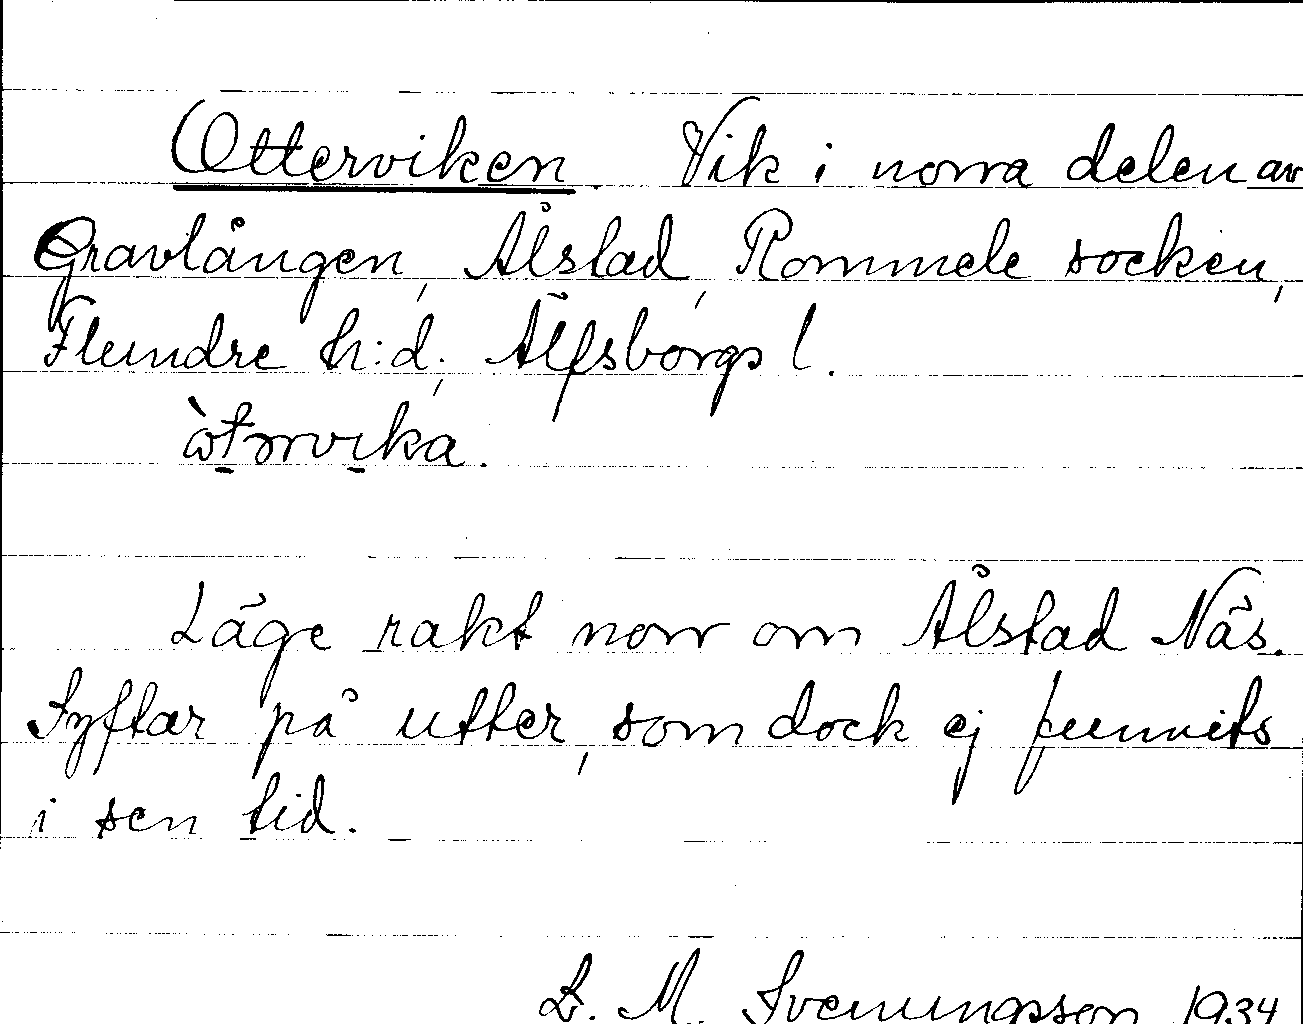 Otterviken. Vik i norra delen av
Gravlången, Ålstad, Rommele socken,
Flundre h:d, Älfsborgs l.
ὼtǝrvika.
Läge rakt norr om Ålstad Näs.
Syftar på utter, som dock ej funnits
i sen tid.
D. M. Svenungsson 1934